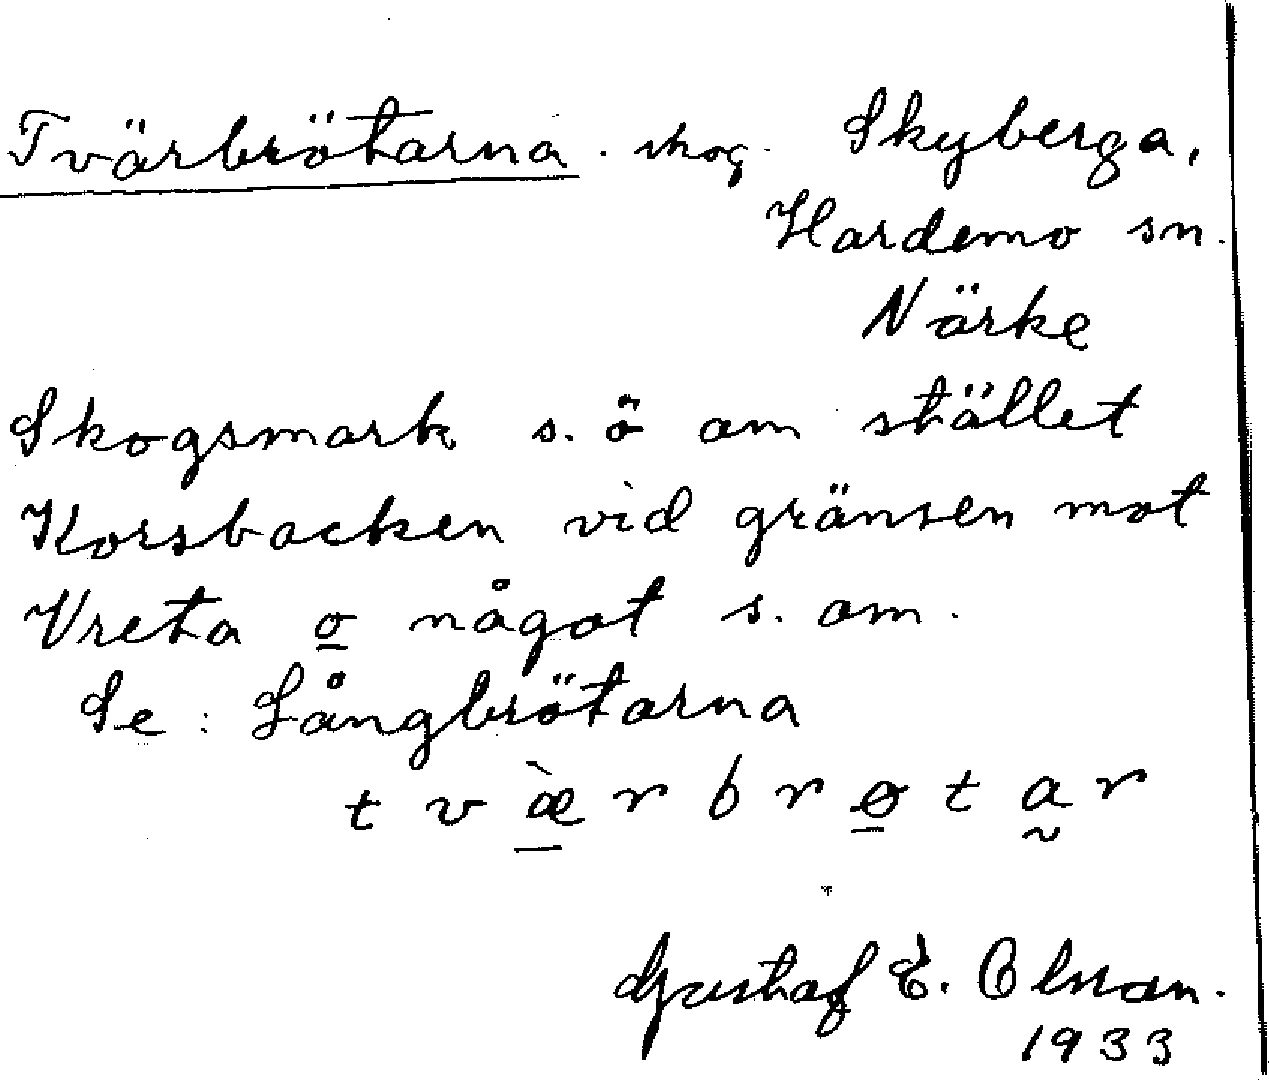 Tvärbrötarna. skog. Skyberga,
Hardemo sn.
Närke
Skogsmark s.ö om stället
Korsbacken vid gränsen mot
Vreta o något s. om.
Se: Långbrötarna
tvæ̀rbrøtar
Gustaf E. Olsson.
1933